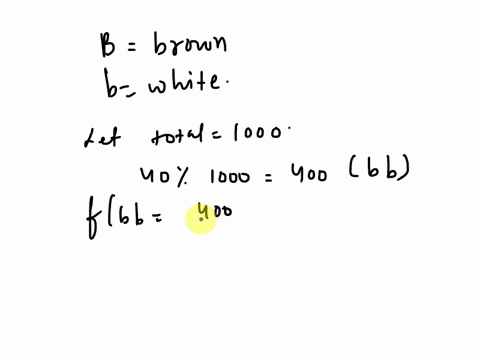 B = brown
b= white.
Let total = 1000.
40% 1000 = 400 (bb)
f(bb = 400